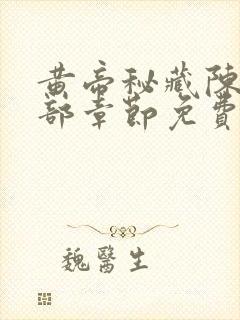 黄帝秘藏陳
部章節免費
魏醫生